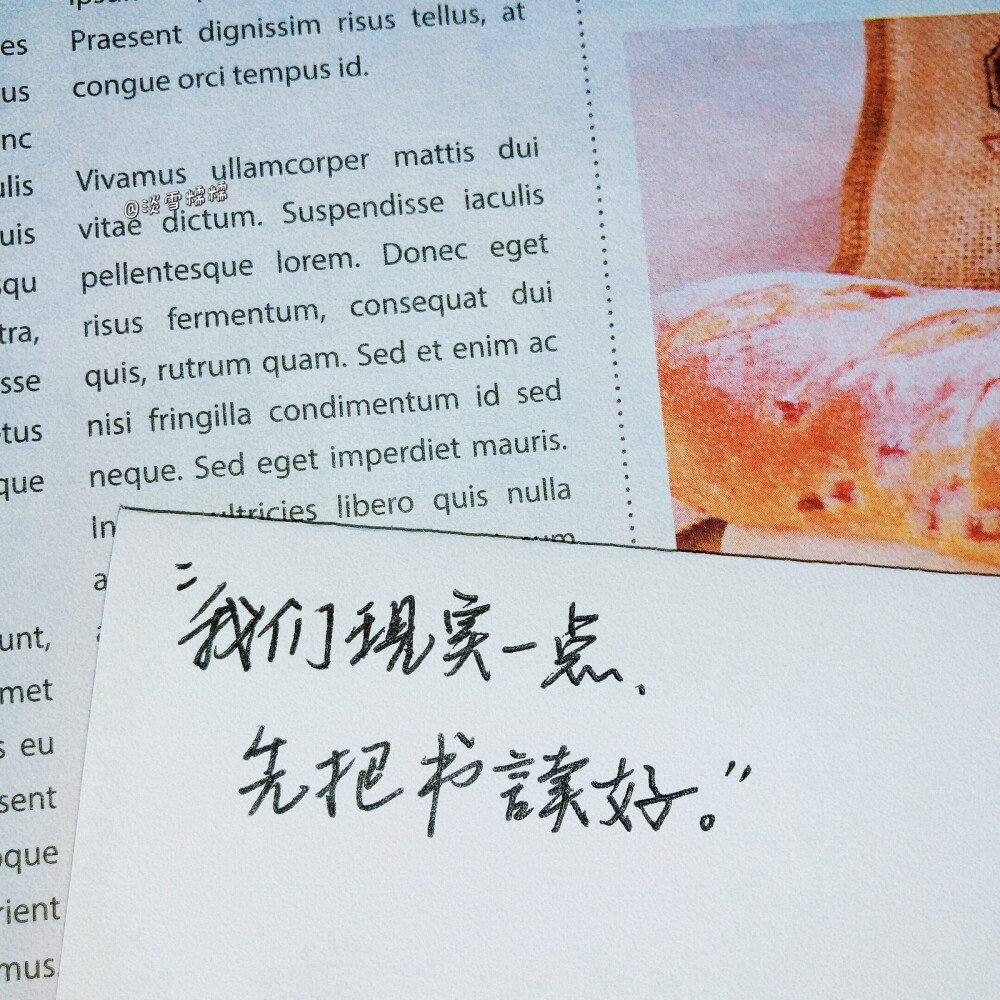 es
us
nc
ulis
uis
squ
tra,
sse
etus
que
unt,
met
s eu
sent
oque
rient
mus
Praesent dignissim risus tellus, at
congue orci tempus id.
Vivamus ullamcorper mattis dui
vitae dictum. Suspendisse iaculis
pellentesque lorem. Donec eget
risus fermentum, consequat dui
quis, rutrum quam. Sed et enim ac
nisi fringilla condimentum id sed
neque. Sed eget imperdiet mauris.
In ultricies libero quis nulla
@淡雪糯糯
"我们現实一点、
先把书読好。"